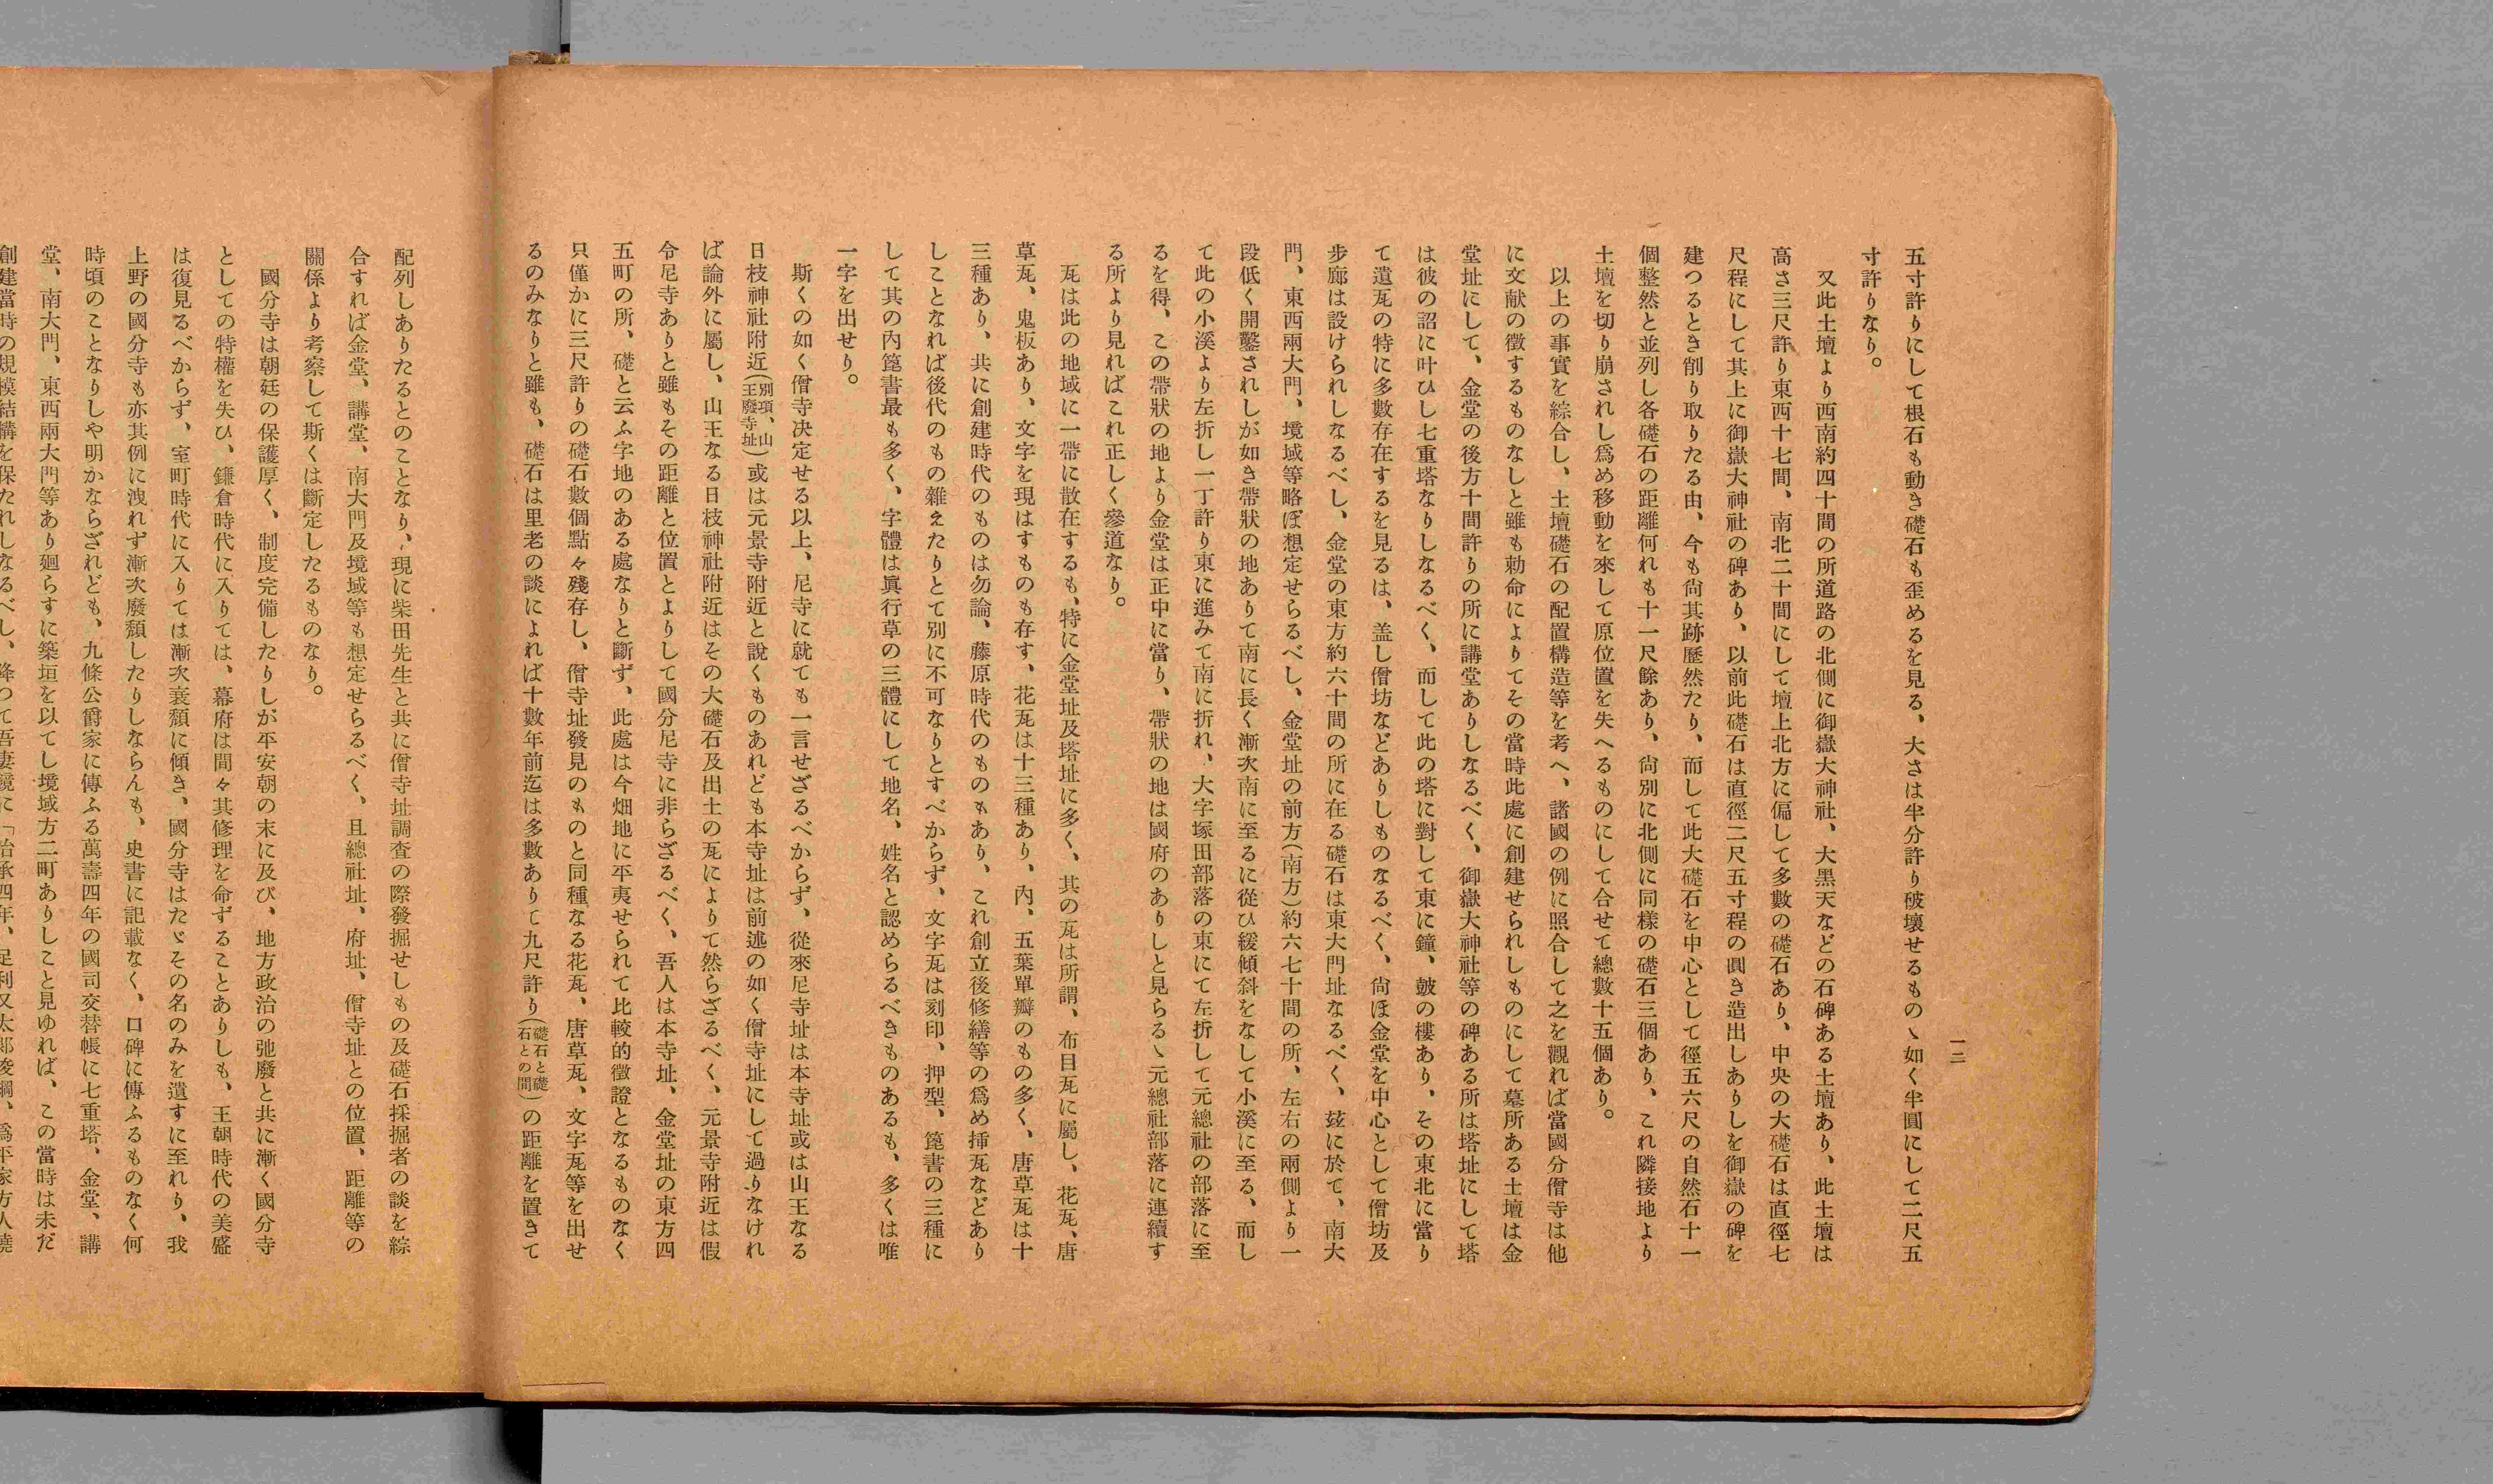 一二
五寸許りにして根石も動き礎石も歪めるを見る、大さは半分許り破壞せるもの、如く半圓にして二尺五
寸許りなり。
又此土壇より西南約四十間の所道路の北側に御嶽大神社、大黑天などの石碑ある土壇あり、此土壇は
高さ三尺許り東西十七間、南北二十間にして壇上北方に偏して多數の礎石あり、中央の大礎石は直徑七
尺程にして其上に御嶽大神社の碑あり、以前此礎石は直徑二尺五寸程の圓き造出しありしを御嶽の碑を
建つるとき削り取りたる由、今も尙其跡歷然たり、而して此大礎石を中心として徑五六尺の自然石十一
個整然と並列し各礎石の距離何れも十一尺餘あり、尙別に北側に同樣の礎石三個あり、これ隣接地より
土壇を切り崩されし爲め移動を來して原位置を失へるものにして合せて總數十五個あり。
以上の事實を綜合し、土壇礎石の配置構造等を考へ、諸國の例に照合して之を觀れば當國分僧寺は他
に文献の徵するものなしと雖も勅命によりてその當時此處に創建せられしものにして墓所ある土壇は金
堂址にして、金堂の後方十間許りの所に講堂ありしなるべく、御嶽大神社等の碑ある所は塔址にして塔
は彼の詔に叶ひし七重塔なりしなるべく、而して此の塔に對して東に鐘、皷の樓あり、その東北に當り
て遺瓦の特に多數存在するを見るは、盖し僧坊などありしものなるべく、尙ほ金堂を中心として僧坊及
步廊は設けられしなるべし、金堂の東方約六十間の所に在る礎石は東大門址なるべく、玆に於て、南大
門、東西兩大門、境域等略ぼ想定せらるべし、金堂址の前方(南方)約六七十間の所、左右の兩側より一
段低く開鑿されしが如き帶狀の地ありて南に長く漸次南に至るに從ひ緩傾斜をなして小溪に至る、而し
て此の小溪より左折し一丁許り東に進みて南に折れ、大字塚田部落の東にて左折して元總社の部落に至
るを得、この帶狀の地より金堂は正中に當り、帶狀の地は國府のありしと見らるゝ元總社部落に連續す
る所より見ればこれ正しく參道なり。
瓦は此の地域に一帶に散在するも、特に金堂址及塔址に多く、其の瓦は所謂、布目瓦に屬し、花瓦、唐
草瓦、鬼板あり、文字を現はすものも存す、花瓦は十三種あり、內、五葉單瓣のもの多く、唐草瓦は十
三種あり、共に創建時代のものは勿論、藤原時代のものもあり、これ創立後修繕等の爲め揷瓦などあり
しことなれば後代のもの雜えたりとて別に不可なりとすべからず、文字瓦は刻印、押型、箆書の三種に
して其の內箆書最も多く、字體は眞行草の三體にして地名、姓名と認めらるべきものあるも、多くは唯
一字を出せり。
斯くの如く僧寺決定せる以上、尼寺に就ても一言せざるべからず、從來尼寺址は本寺址或は山王なる
日枝神社附近(別項、山王廢寺址)或は元景寺附近と說くものあれども本寺址は前述の如く僧寺址にして過りなけれ
ば論外に屬し、山王なる日枝神社附近はその大礎石及出土の瓦によりて然らざるべく、元景寺附近は假
令尼寺ありと雖もその距離と位置とよりして國分尼寺に非らざるべく、吾人は本寺址、金堂址の東方四
五町の所、礎と云ふ字地のある處なりと斷ず、此處は今畑地に平夷せられて比較的徵證となるものなく
只僅かに三尺許りの礎石數個點々殘存し、僧寺址發見のものと同種なる花瓦、唐草瓦、文字瓦等を出せ
るのみなりと雖も、礎石は里老の談によれば十數年前迄は多數ありて九尺許り(礎石と礎石との間)の距離を置きて
配列しありたるとのことなり、現に柴田先生と共に僧寺址調査の際發掘せしもの及礎石採掘者の談を綜
合すれば金堂、講堂、南大門及境域等も想定せらるべく、且總社址、府址、僧寺址との位置、距離等の
關係より考察して斯くは斷定したるものなり。
國分寺は朝廷の保護厚く、制度完備したりしが平安朝の末に及び、地方政治の弛廢と共に漸く國分寺
としての特權を失ひ、鎌倉時代に入りては、幕府は間々其修理を命ずることありしも、王朝時代の美盛
は復見るべからず、室町時代に入りては漸次衰頽に傾き、國分寺はたゞその名のみを遺すに至れり、我
上野の國分寺も亦其例に洩れず漸次廢頽したりしならんも、史書に記載なく、口碑に傳ふるものなく何
時頃のことなりしや明かならざれども、九條公爵家に傳ふる萬壽四年の國司交替帳に七重塔、金堂、講
堂、南大門、東西兩大門等あり廻らすに築垣を以てし境域方二町ありしこと見ゆれば、この當時は未だ
創建當時の規模結構を保たれしなるべし、降つて吾妻鏡に「治承四年、足利又太郞俊綱、爲平家方人燒